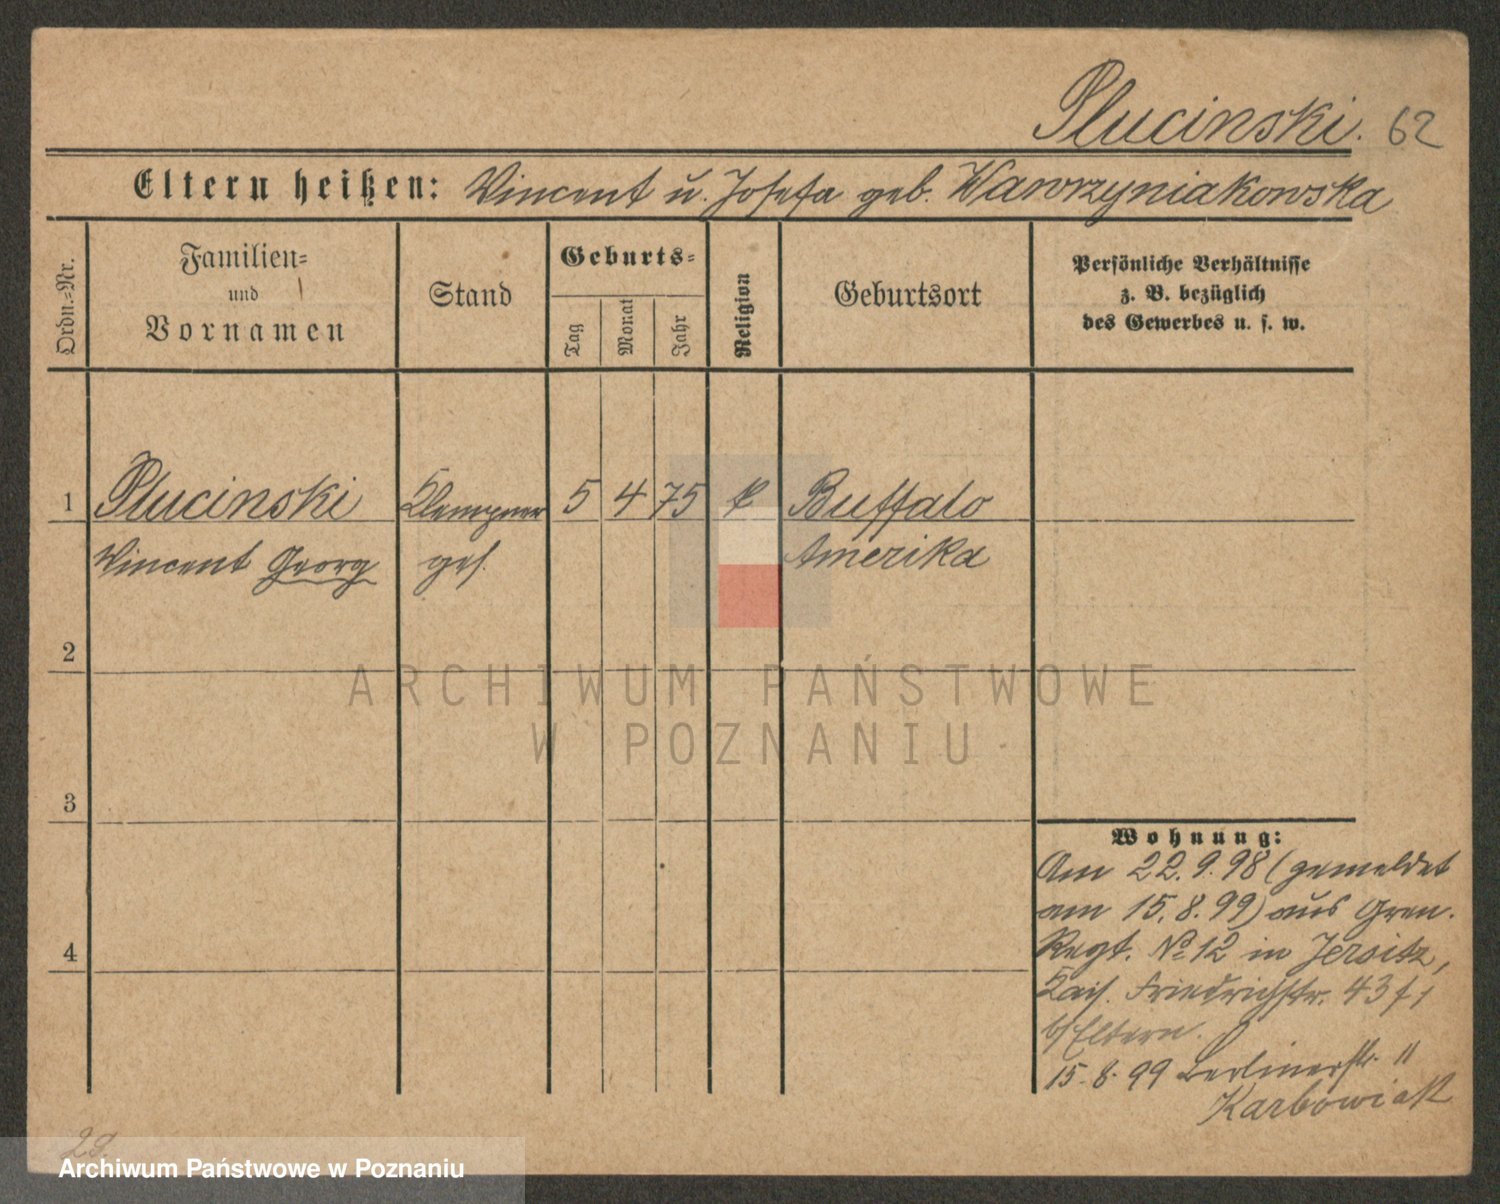 Plucinski. 62
Eltern heißen: Vincent u. Josefa geb. Wawrzyniakowska
Ordn.-Nr.
Familien-
und
Vornamen
Stand
Geburts-
Tag
Monat
Jahr
Religion
Geburtsort
Persönliche Verhältnisse
z. B. bezüglich
des Gewerbes u. s. w.
1 Plucinski Klempner 5 4 75 k Buffalo
Vincent Georg ges. Amerika
2
3
4
Wohnung:
Am 22.9.98 (gemeldet
am 15.8.99) aus Gren.
Regt. No 12 in Jersitz,
Kais. Friedrichstr. 43
b/Eltern.
15.8.99 Berlinerstr. 11
Karbowiak
ARCHIWUM PAŃSTWOWE
W POZNANIU
Archiwum Państwowe w Poznaniu